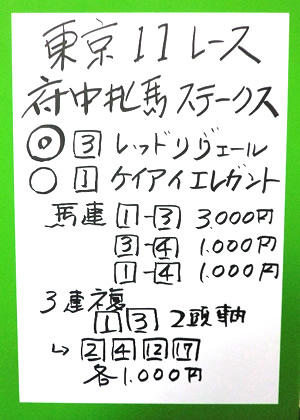 東京11レース
府中牝馬ステークス
◎ 3 レッドリヴェール
○ 1 ケイアイエレガント
馬連 1-3 3,000円
3-4 1,000円
1-4 1,000円
3連複
1 3 2頭軸
↳ 2 4 12 17
各1,000円